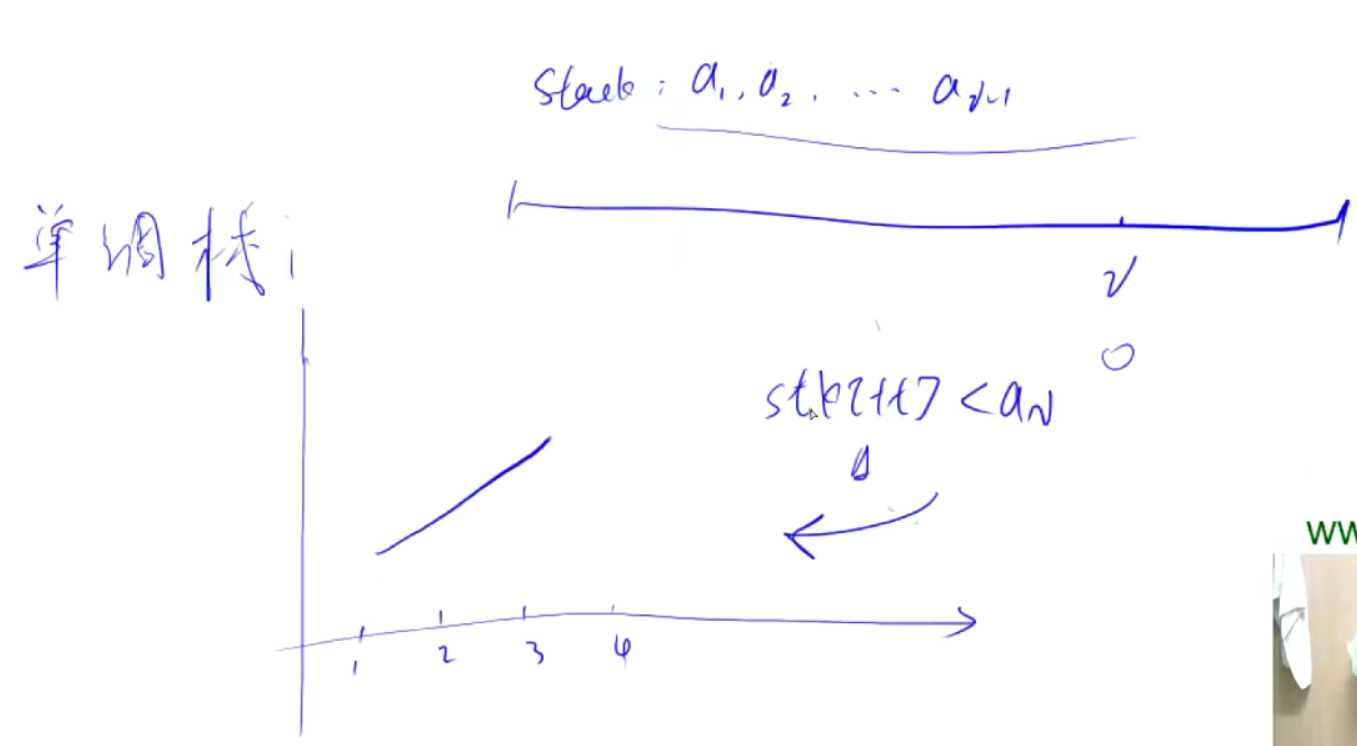 stack: a₁, a₂, ... aᵢ₋₁
单调栈:
i
stk[tt] < aᵢ
1 2 3 4